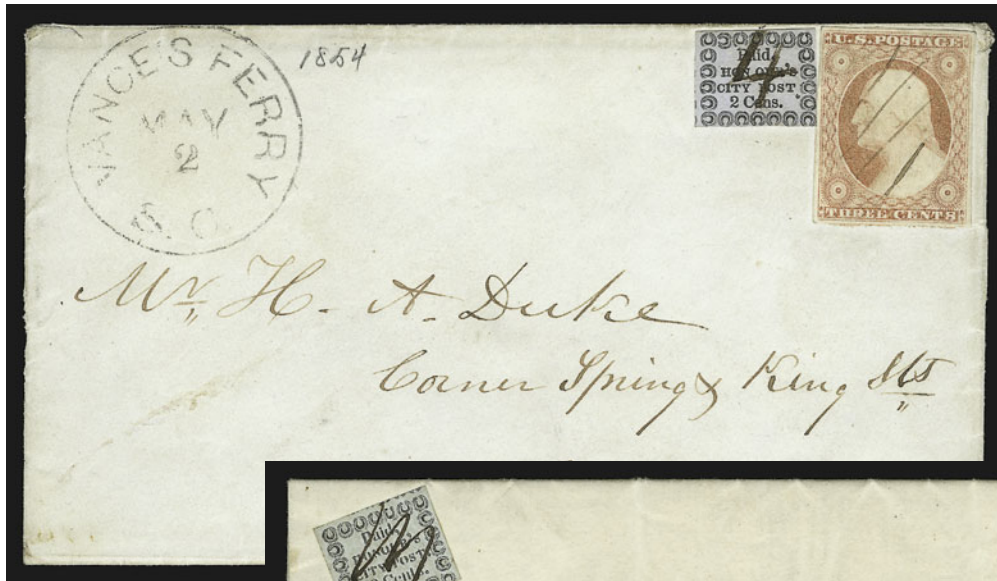 VANCE'S FERRY
MAY
2
S. C.
1854
Paid.
HONOUR'S
CITY POST
2 Cens.
4
U.S. POSTAGE
THREE CENTS
Mr. H. A. Duke
Corner Spring & King Sts
Paid.
HONOUR'S
CITY POST
2 Cents.